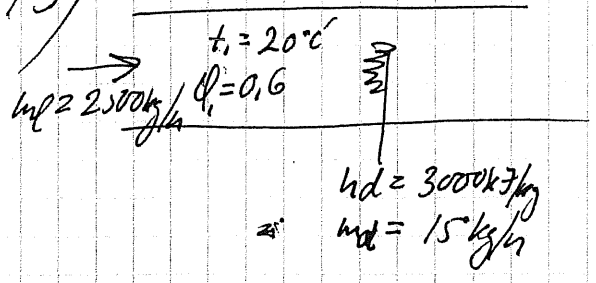 t₁ = 20°C
ml = 2500kg/h φ₁ = 0,6
hd = 3000kJ/kg
md = 15 kg/h